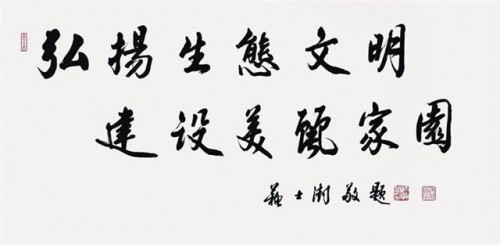 弘揚生態文明
建设美麗家園
蘇士澍敬題